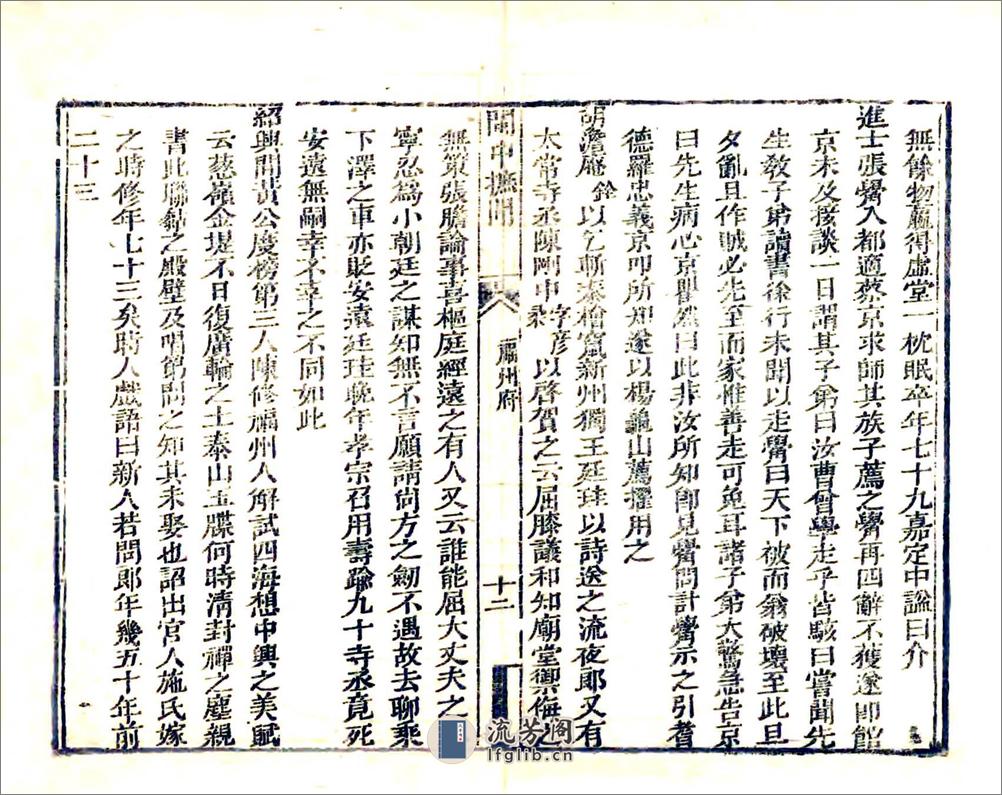 無餘物贏得虛堂一枕眠卒年七十九嘉定中諡曰介
進士張觷入都適蔡京求師其族子薦之觷再四辭不獲遂即館
京未及接談一日謂其子弟曰汝曹曾學走乎皆駭曰嘗聞先
生敎子弟讀書徐行未聞以走觷曰天下被而翁破壞至此旦
夕亂且作賊必先至而家惟善走可免耳諸子弟大驚急告京
曰先生病心京瞿然曰此非汝所知即見觷問計觷示之引耆
德羅忠義京叩所知遂以楊龜山薦擢用之
胡澹庵銓以乞斬秦檜竄新州獨王廷珪以詩送之流夜郎又有
太常寺丞陳剛中字彥柔以啓賀之云屈膝議和知廟堂禦侮之
閩中摭聞
福州府
十二
無策張膽論事喜樞庭經遠之有人又云誰能屈大丈夫之
寧忍爲小朝廷之謀知無不言願請尙方之劒不遇故去聊乘
下澤之車亦貶安遠廷珪晚年孝宗召用壽踰九十寺丞竟死
安遠無嗣幸不幸之不同如此
紹興間黃公度榜第三人陳修福州人解試四海想中興之美賦
云葱嶺金堤不日復廣輪之土泰山玉牒何時清封禪之塵親
書此聯黏之殿壁及唱第問之知其未娶也詔出宮人施氏嫁
之時修年七十三矣時人戲語曰新人若問郎年幾五十年前
二十三
流芳阁
lfglib.cn